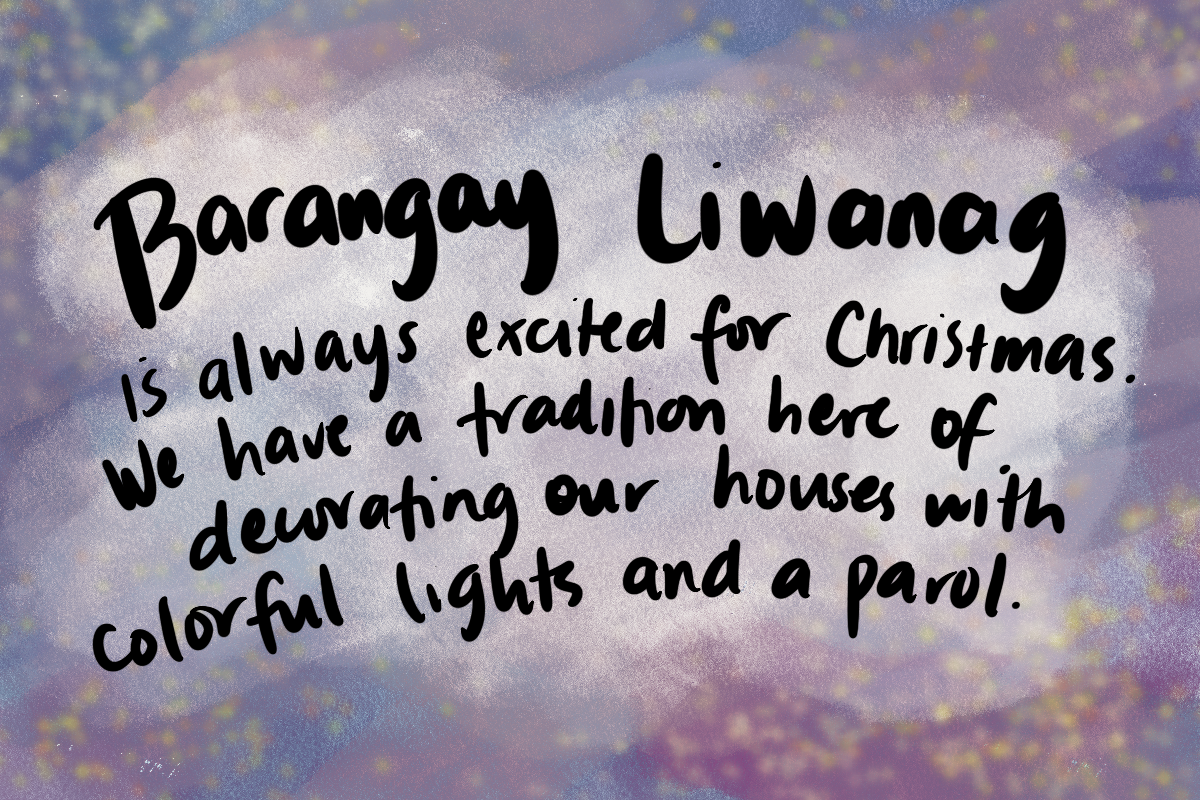 Barangay Liwanag
is always excited for Christmas.
We have a tradition here of
decorating our houses with
colorful lights and a parol.